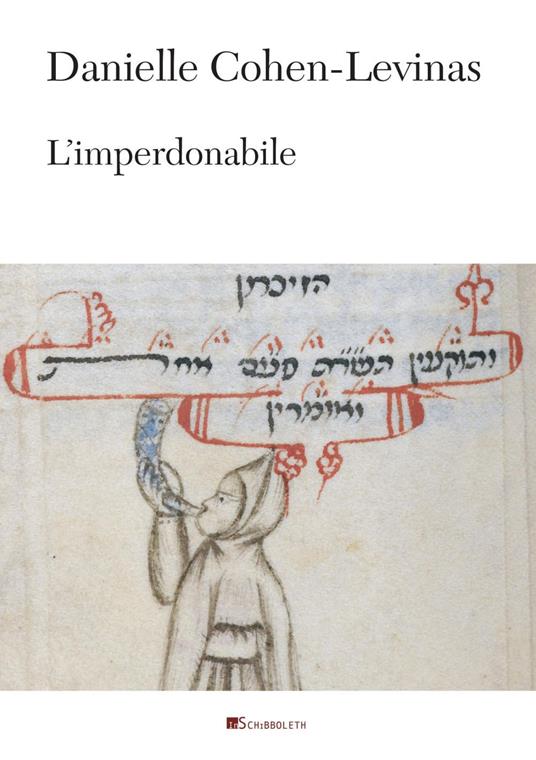 Danielle Cohen-Levinas
L'imperdonabile
הזיכרון
ותוקעין תשר״ת פעם אחת
ואומרין
InSCHIBBOLETH